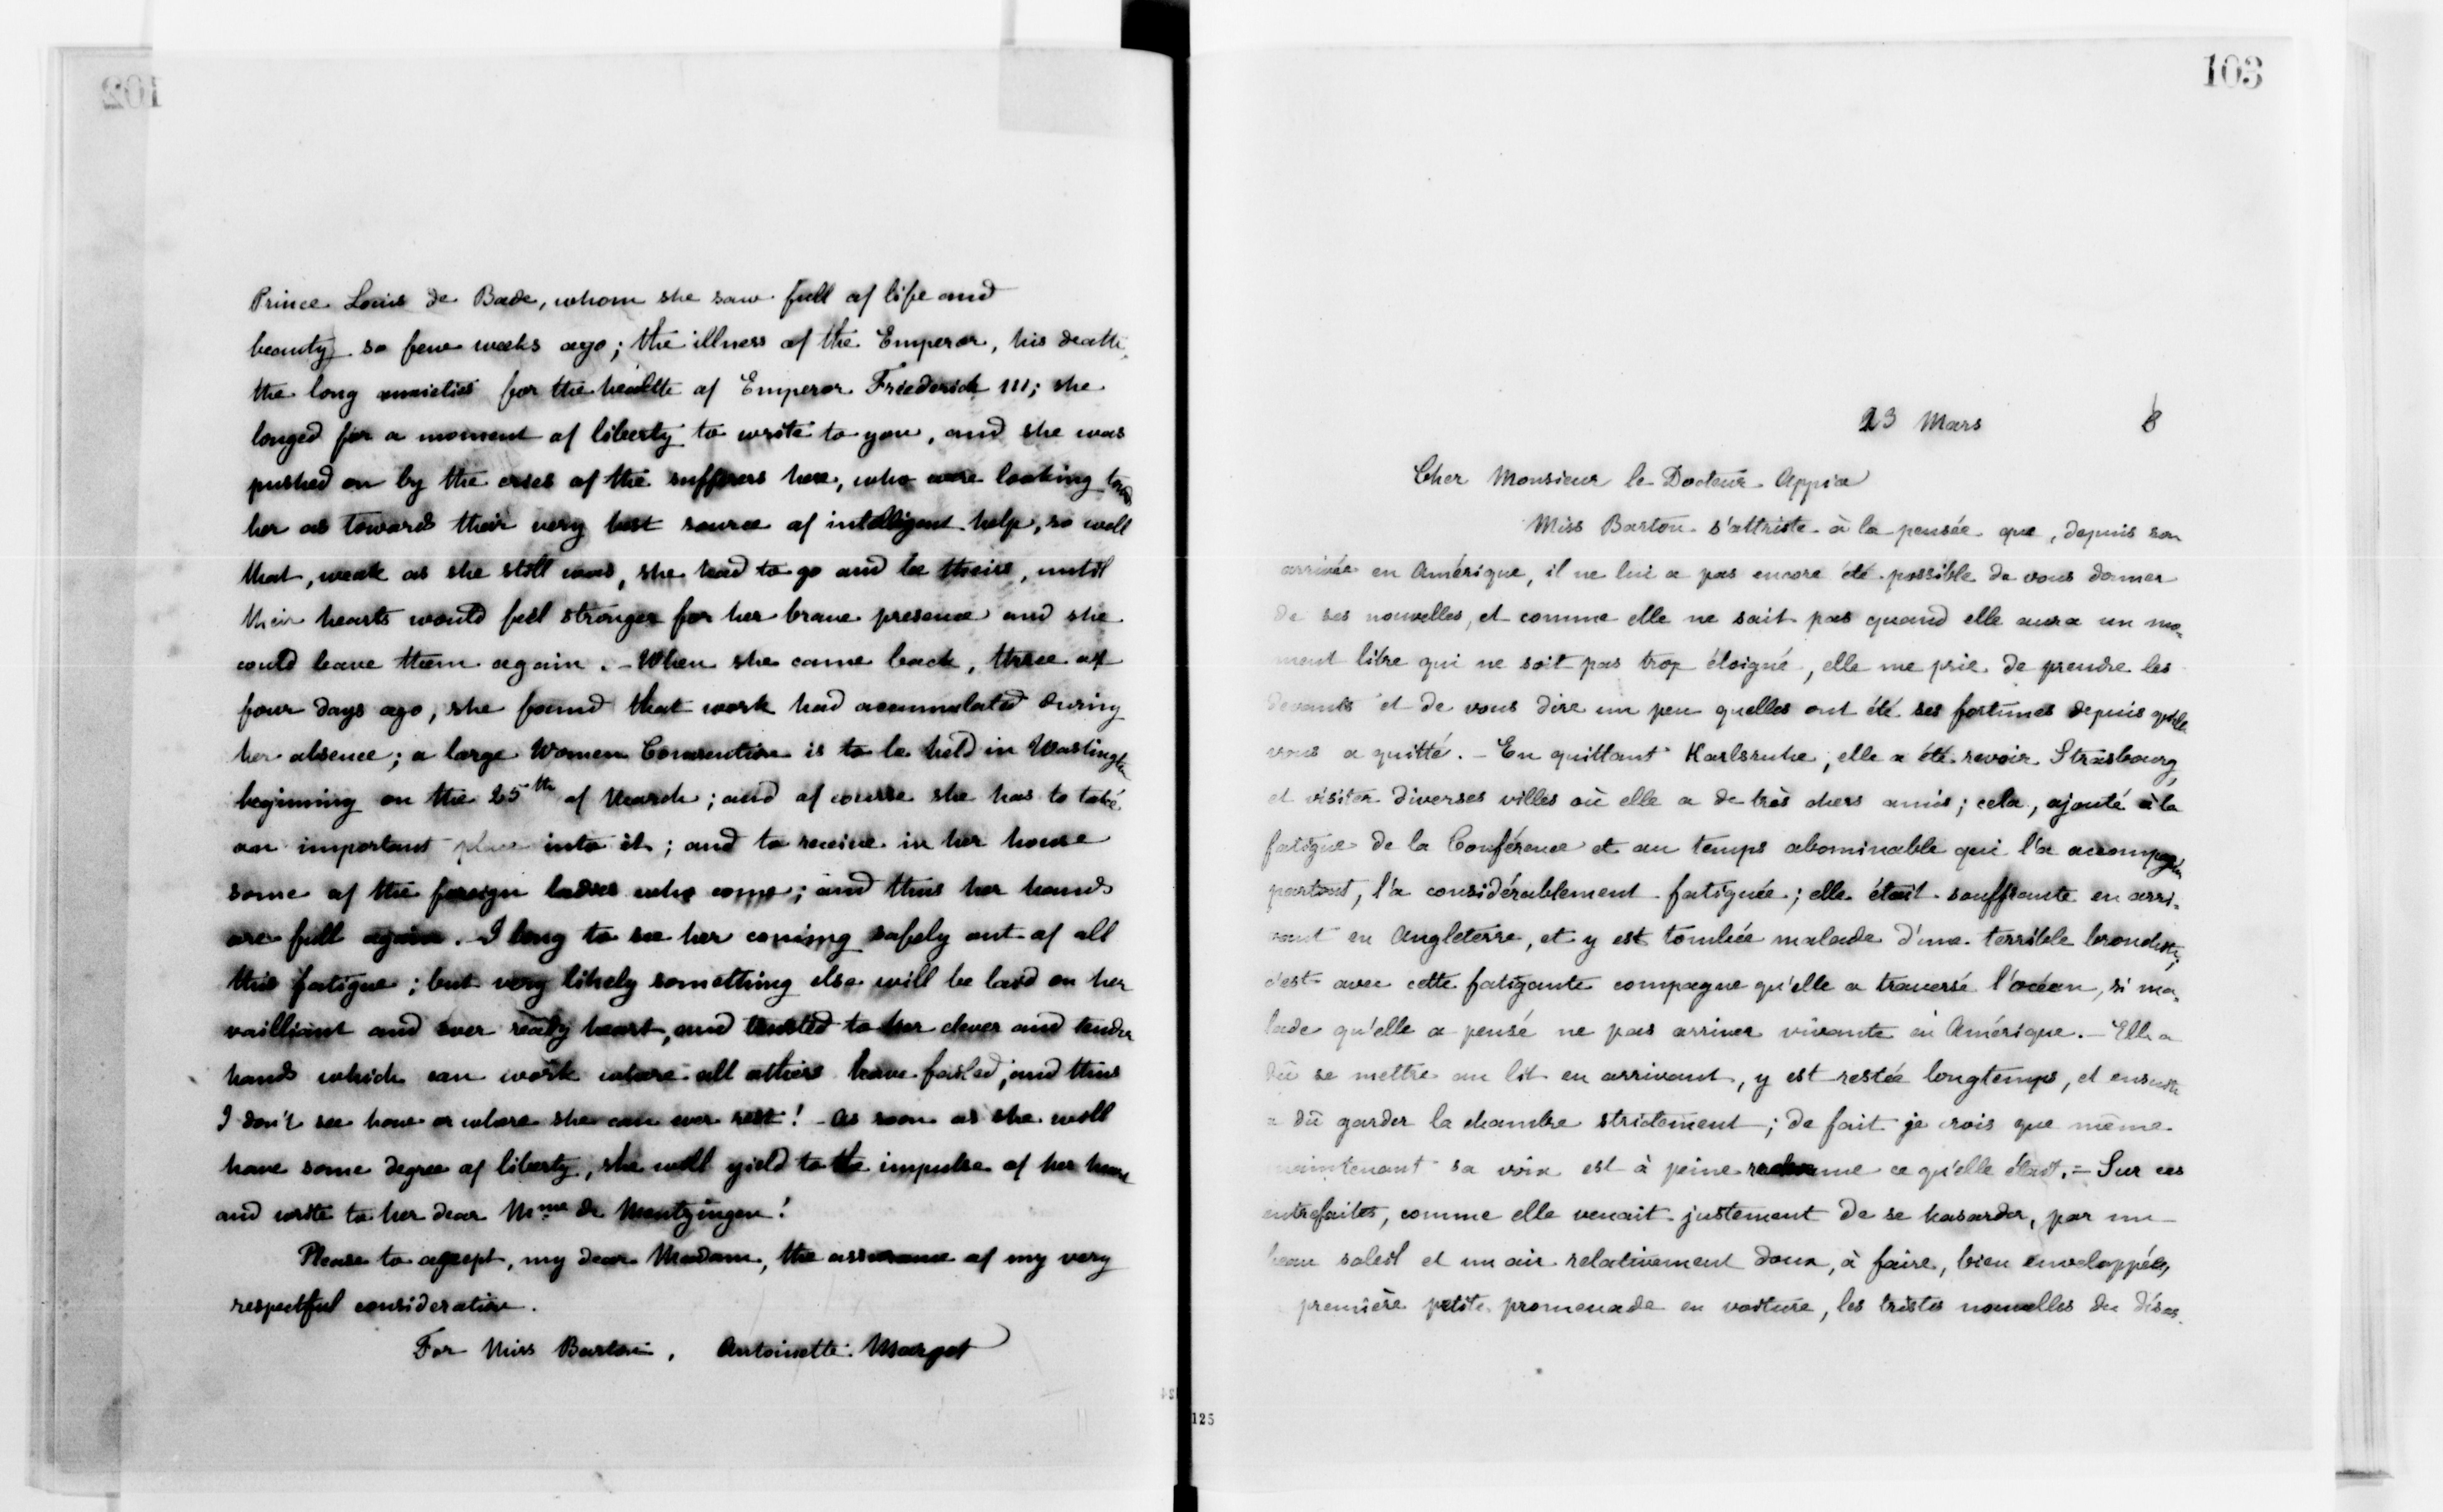 102
Prince Louis de Bade, whom she saw full of life and
beauty so few weeks ago; the illness of the Emperor, his death,
the long anxieties for the health of Emperor Friederick III; she
longed for a moment of liberty to write to you, and she was
pushed on by the cries of the sufferers here, who were looking
her as toward their very best source of intelligent help, so well
that, weak as she still was, she had to go and be there, until
their hearts would feel stronger for her brave presence and she
could leave them again. - When she came back, three or
four days ago, she found that work had accumulated during
her absence; a large Women Convention is to be held in Washington
beginning on the 25th of March; and of course she has to take
an important place into it; and to receive in her house
some of the foreign ladies who come; and thus her hands
are full again. I long to see her coming safely out of all
this fatigue; but very likely something else will be laid on her
vailliant and ever ready heart, and trusted to her clever and tender
hands which can work where all others have failed, and thus
I don't see how or where she can ever rest! - As soon as she will
have some degree of liberty, she will yield to the impulse of her heart
and write to her dear Mme de Mentzingen!
Please to accept, my dear Madam, the assurance of my very
respectful consideration.
For Miss Barton, Antoinette Margot
103
23 Mars 8
Cher Monsieur le Docteur Appia
Miss Barton s'attriste à la pensée que, depuis son
arrivée en Amérique, il ne lui a pas encore été possible de vous donner
de ses nouvelles, et comme elle ne sait pas quand elle aura un mo=
ment libre qui ne soit pas trop éloigné, elle me prie de prendre les
devants et de vous dire un peu quelles ont été ses fortunes depuis qu'elle
vous a quitté. - En quittant Karlsruhe, elle a été revoir Strasbourg,
et visiter diverses villes où elle a de très chers amis; cela, ajouté à la
fatigue de la Conférence et au temps abominable qui l'a accompagnée
partout, l'a considérablement fatiguée; elle était souffrante en arri=
vant en Angleterre, et y est tombée malade d'une terrible bronchite;
c'est avec cette fatigante compagne qu'elle a traversé l'océan, si ma=
lade qu'elle a pensé ne pas arriver vivante en Amérique. - Elle a
dû se mettre au lit en arrivant, y est restée longtemps, et ensuite
a dû garder la chambre strictement; de fait je crois que même
maintenant sa voix est à peine ce qu'elle était. = Sur ces
entrefaites, comme elle venait justement de se hasarder, par un
beau soleil et un air relativement doux, à faire, bien enveloppée,
première petite promenade en voiture, les tristes nouvelles du désas=
125